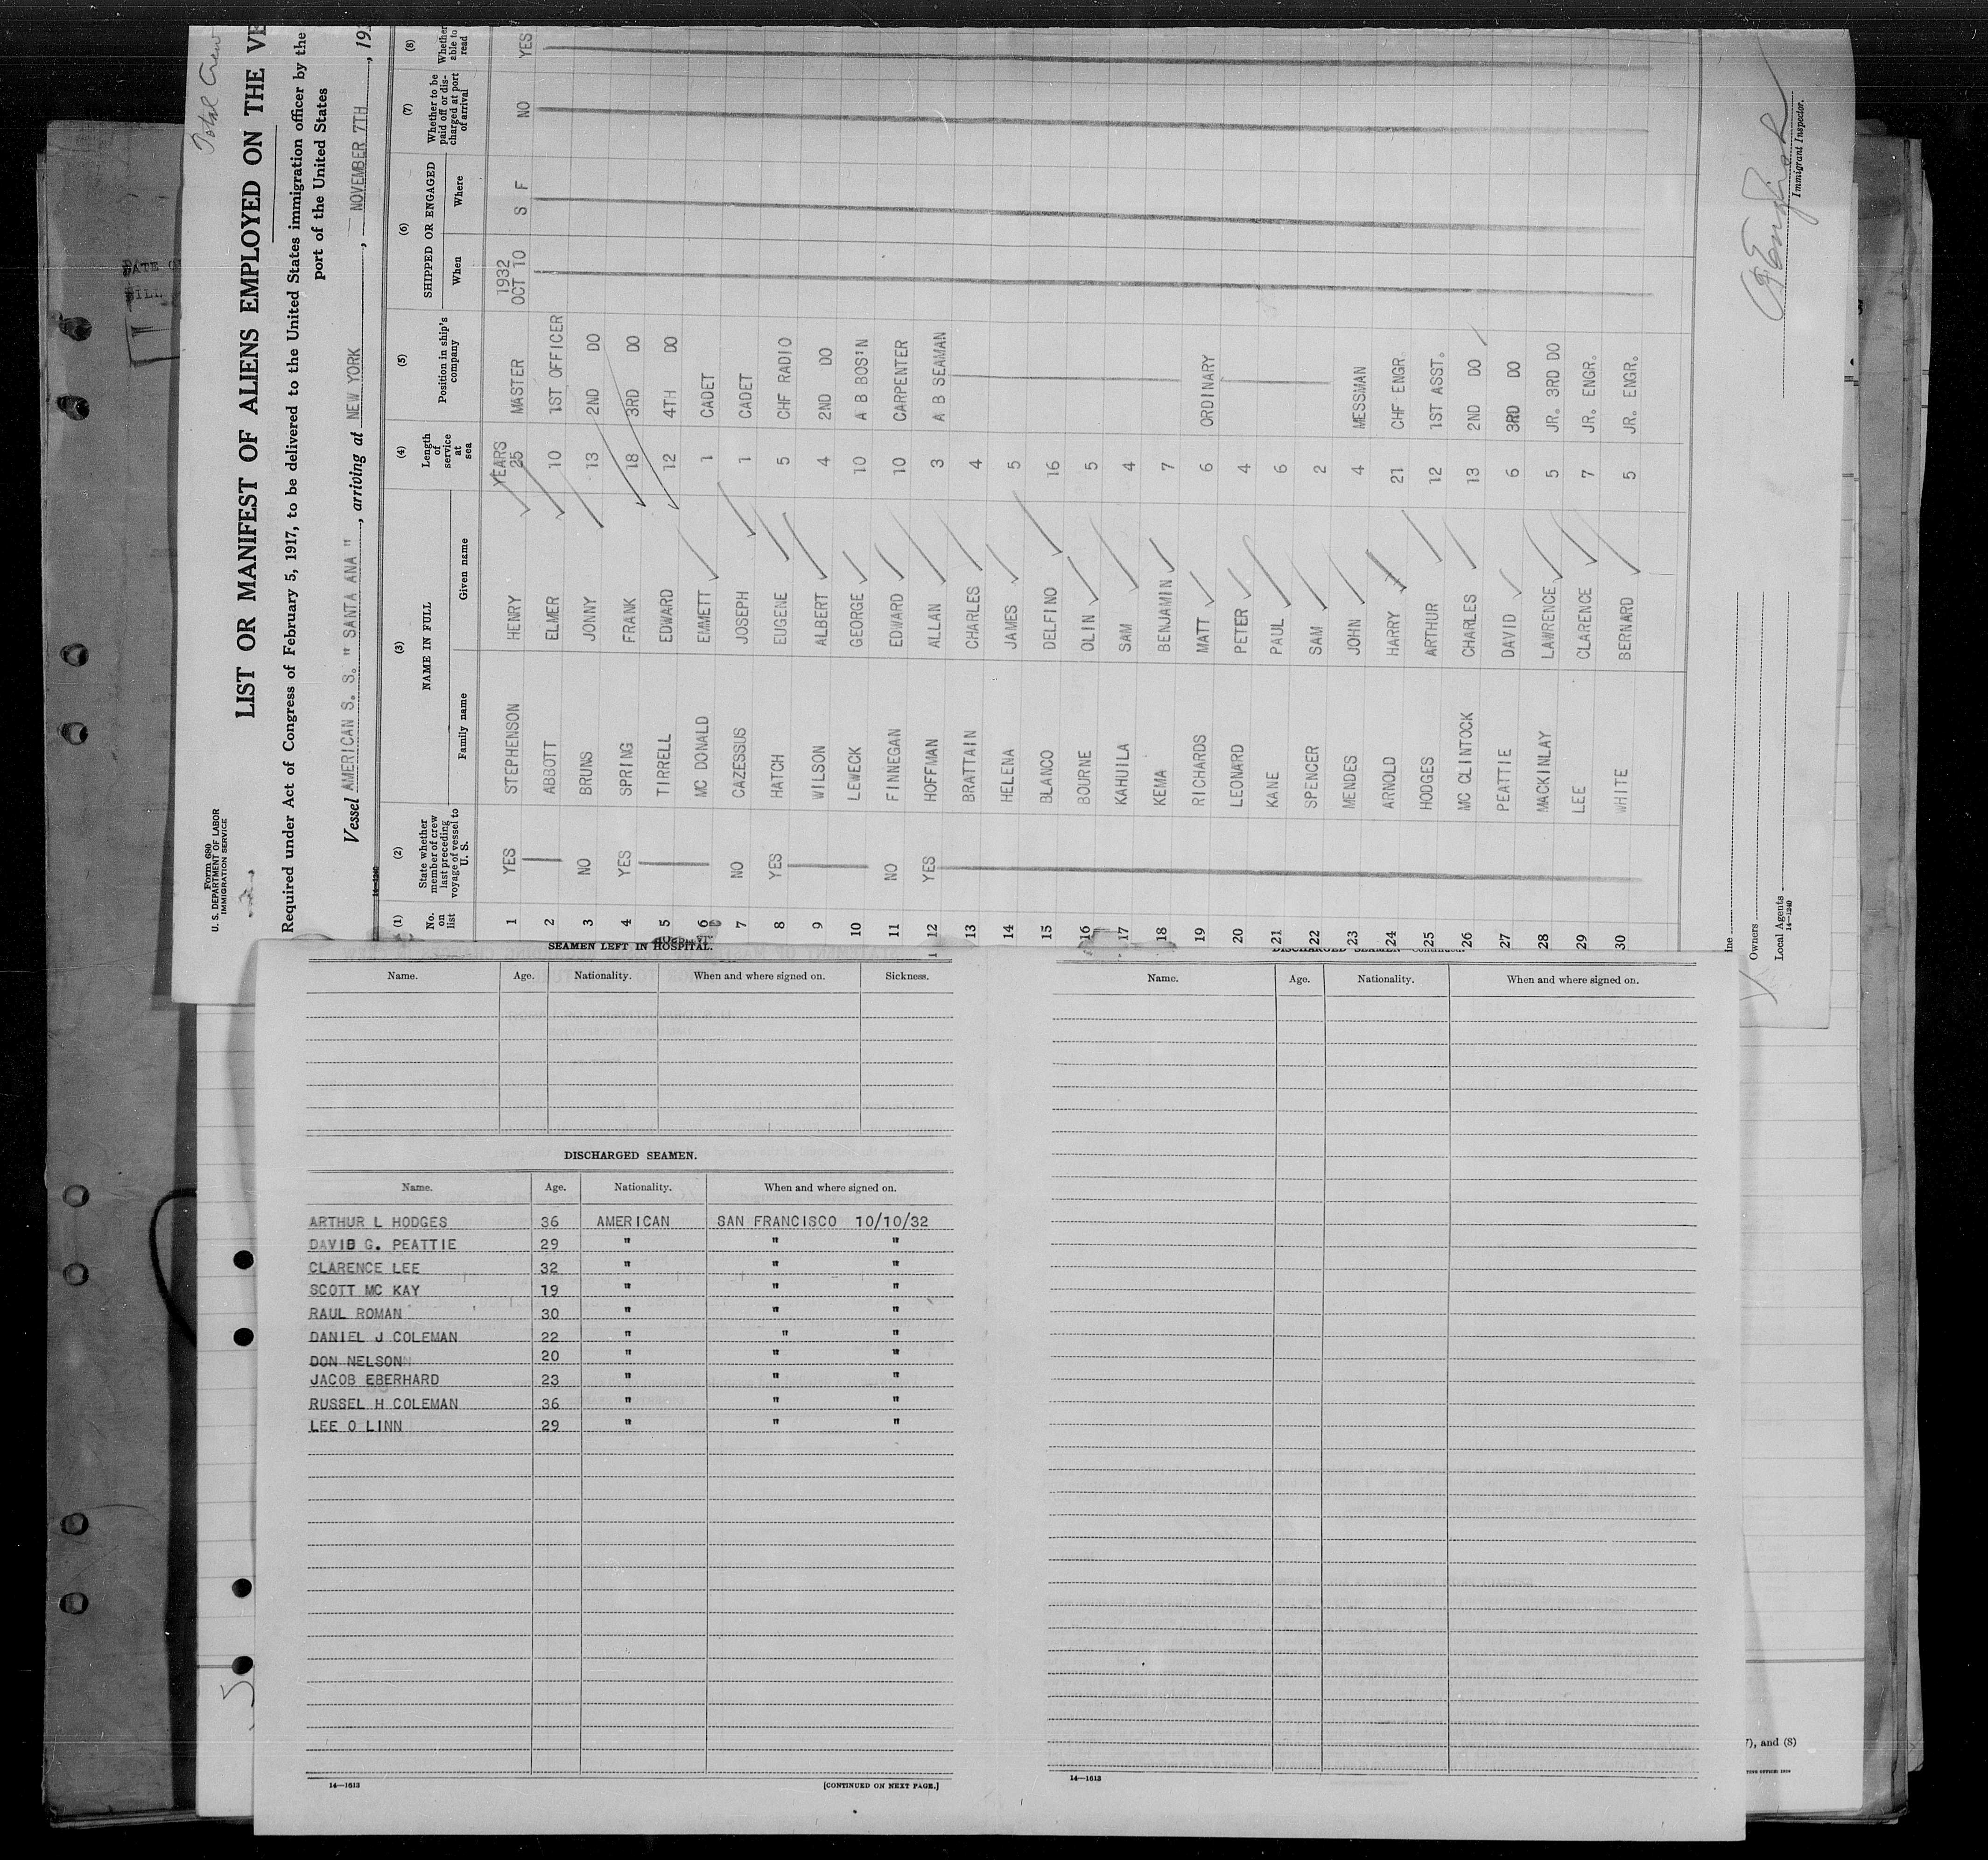 Total Crew
Form 680
U. S. DEPARTMENT OF LABOR
IMMIGRATION SERVICE
LIST OR MANIFEST OF ALIENS EMPLOYED ON THE VE
Required under Act of Congress of February 5, 1917, to be delivered to the United States immigration officer by the
port of the United States
Vessel AMERICAN S. S. " SANTA ANA ", arriving at NEW YORK, NOVEMBER 7TH, 193
(1) (2) (3) (4) (5) (6) (7) (8)
No. on list
State whether member of crew last preceding voyage of vessel to U. S.
NAME IN FULL
Family name Given name
Length of service at sea
Position in ship's company
SHIPPED OR ENGAGED
When Where
Whether to be paid off or discharged at port of arrival
Whether able to read
1 YES STEPHENSON HENRY YEARS 25 MASTER 1932 OCT 10 S F NO YES
2 ABBOTT ELMER 10 1ST OFFICER
3 NO BRUNS JONNY 13 2ND DO
4 YES SPRING FRANK 18 3RD DO
5 TIRRELL EDWARD 12 4TH DO
6 MC DONALD EMMETT 1 CADET
7 NO CAZESSUS JOSEPH 1 CADET
8 YES HATCH EUGENE 5 CHF RADIO
9 WILSON ALBERT 4 2ND DO
10 LEWECK GEORGE 10 A B BOS'N
11 NO FINNEGAN EDWARD 10 CARPENTER
12 YES HOFFMAN ALLAN 3 A B SEAMAN
13 BRATTAIN CHARLES 4
14 HELENA JAMES 5
15 BLANCO DELFINO 16
16 BOURNE OLIN 5
17 KAHUILA SAM 4
18 KEMA BENJAMIN 7
19 RICHARDS MATT 6 ORDINARY
20 LEONARD PETER 4
21 KANE PAUL 6
22 SPENCER SAM 2
23 MENDES JOHN 4 MESSMAN
24 ARNOLD HARRY 21 CHF ENGR.
25 HODGES ARTHUR 12 1ST ASST.
26 MC CLINTOCK CHARLES 13 2ND DO
27 PEATTIE DAVID 6 3RD DO
28 MACKINLAY LAWRENCE 5 JR. 3RD DO
29 LEE CLARENCE 7 JR. ENGR.
30 WHITE BERNARD 5 JR. ENGR.
Immigrant Inspector.
Owners
Local Agents
14-1240
SEAMEN LEFT IN HOSPITAL.
Name. Age. Nationality. When and where signed on. Sickness.
DISCHARGED SEAMEN.
Name. Age. Nationality. When and where signed on.
ARTHUR L HODGES 36 AMERICAN SAN FRANCISCO 10/10/32
DAVID G. PEATTIE 29 " " "
CLARENCE LEE 32 " " "
SCOTT MC KAY 19 " " "
RAUL ROMAN 30 " " "
DANIEL J COLEMAN 22 " " "
DON NELSON 20 " " "
JACOB EBERHARD 23 " " "
RUSSEL H COLEMAN 36 " " "
LEE O LINN 29 " " "
14—1613
[CONTINUED ON NEXT PAGE.]
DISCHARGED SEAMEN—Continued.
Name. Age. Nationality. When and where signed on.
14—1613
7), and (8)